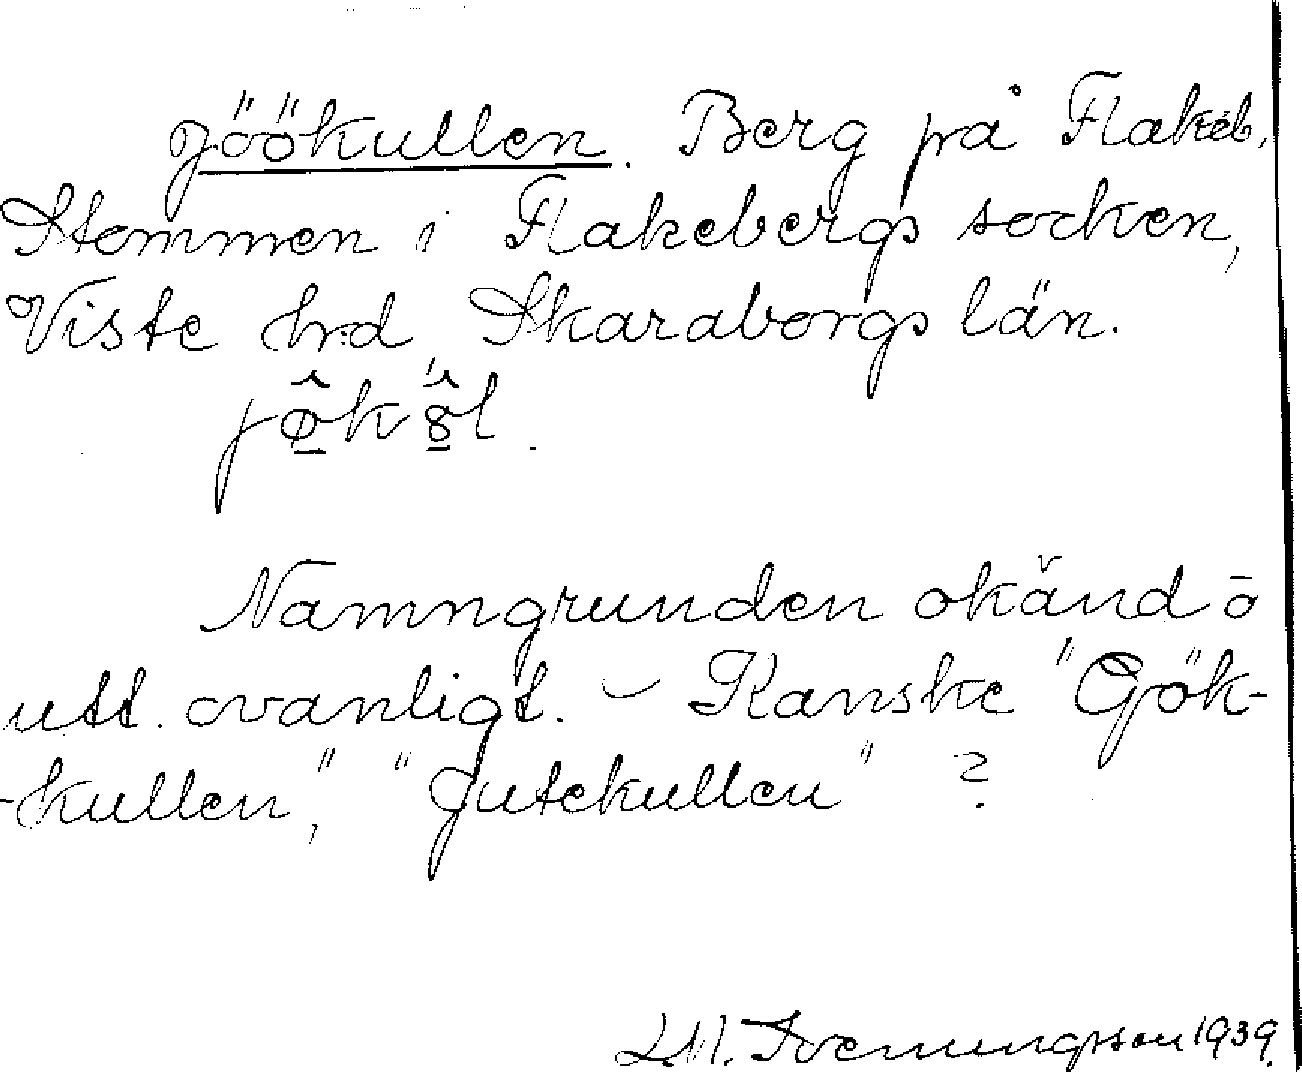 Jöökullen. Berg på Flakeb.
Stommen i Flakebergs socken,
Viste hrd, Skaraborgs län.
Namngrunden okänd o
utt. ovanligt. - Kanske "Gök-
-kullen", "Jutekullen" ?
L.M. Svenungsson 1939.